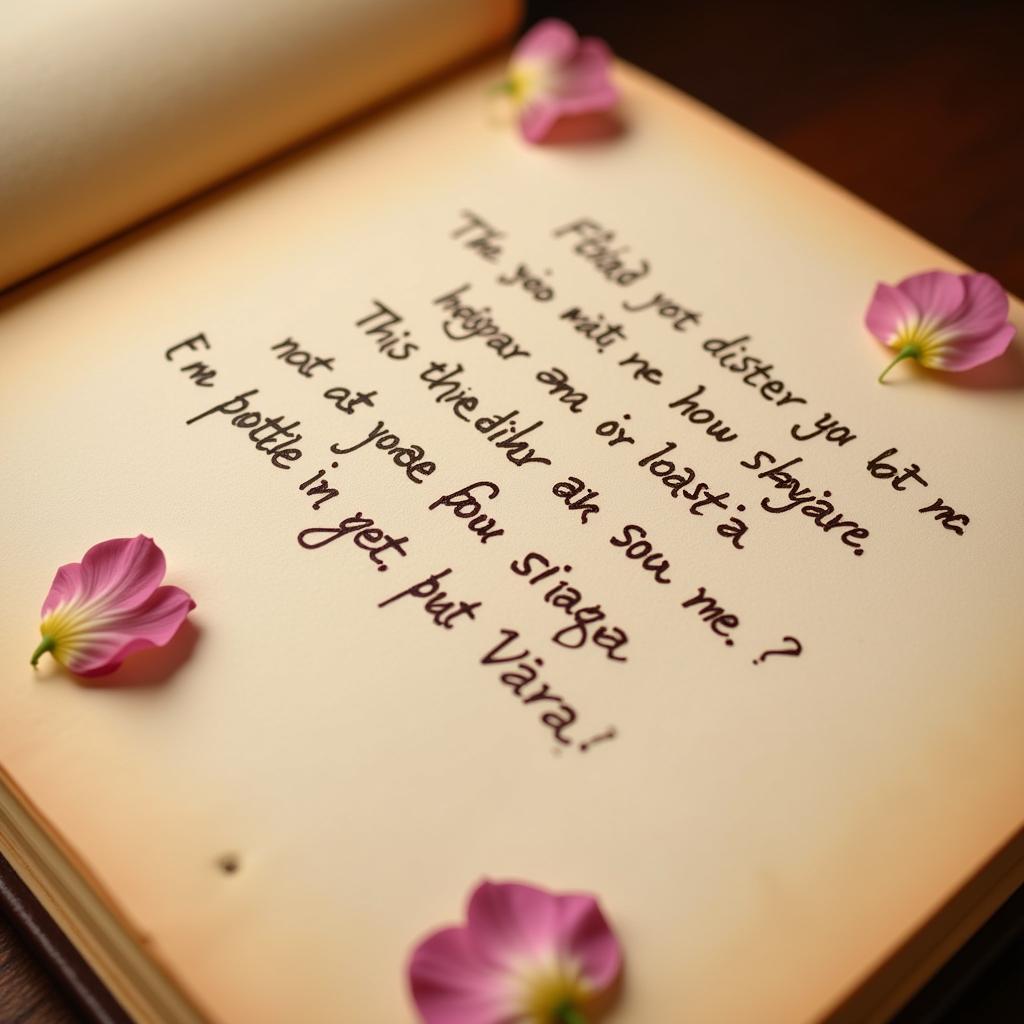 Fÿlad yot dister you bot me
The yoo wait ne how skyyare.
heigpar am or loast a
This thiedihr ah sou me. ?
not at yorae fou siaga
Em pottle in get. put Vära!